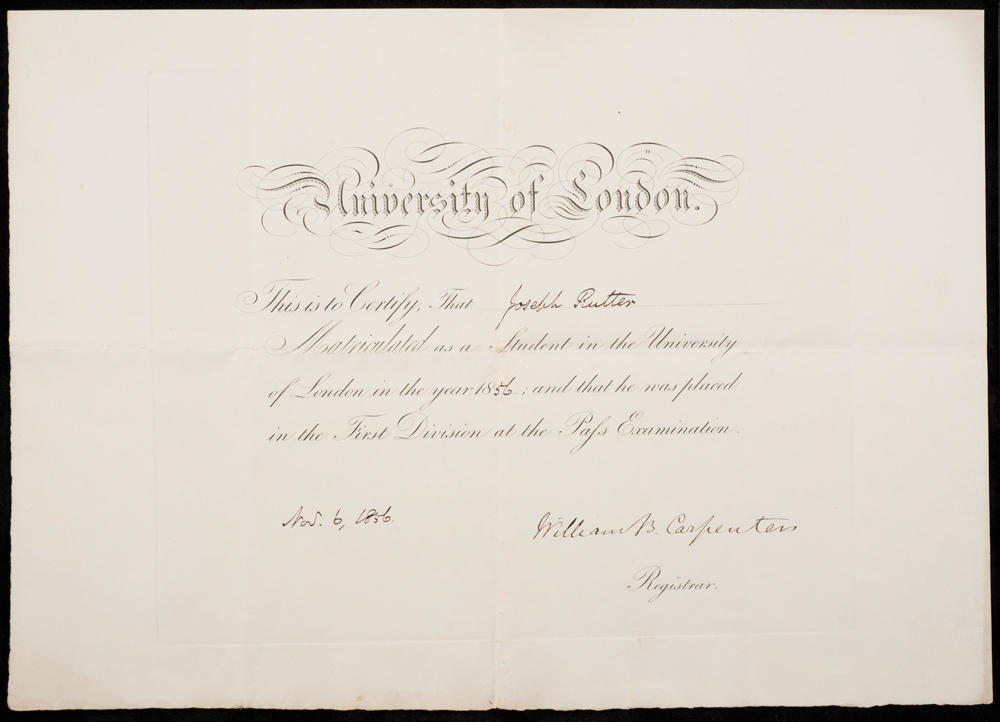 University of London.
This is to Certify, That Joseph Rutter
Matriculated as a Student in the University
of London in the year 1856; and that he was placed
in the First Division at the Paſs Examination.
Nov. 6, 1856.
William B. Carpenter
Registrar.